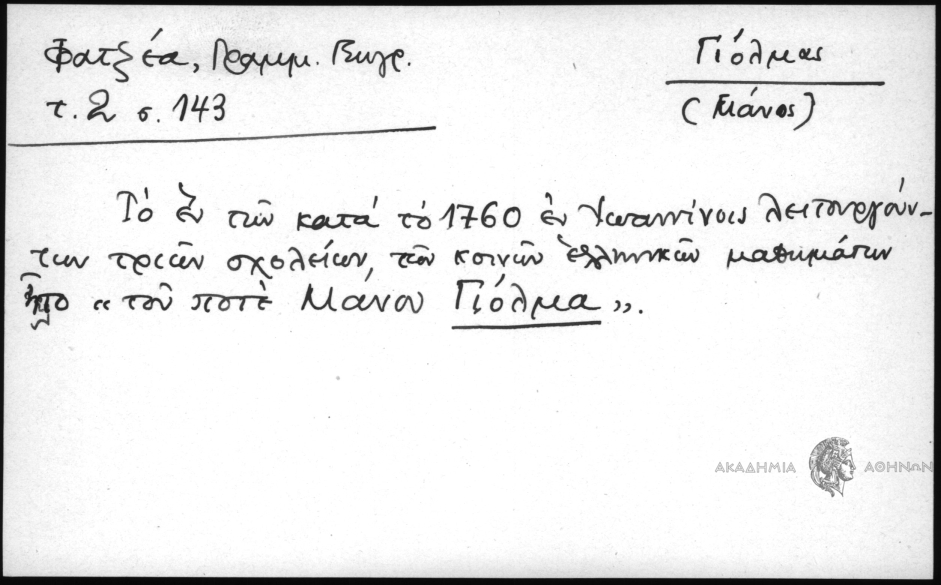 Φατζέα, Γραμμ. Βιγρ.
τ. 2 σ. 143
Γιόλμας
(Μάνος)
Τὸ ἓν τῶν κατά τὸ 1760 ἐν Ἰωαννίνοις λειτουργούν-
των τριῶν σχολείων, τῶν κοινῶν ἑλληνικῶν μαθημάτων
ἦτο « τοῦ ποτὲ Μάνου Γιόλμα ».
ΑΚΑΔΗΜΙΑ ΑΘΗΝΩΝ